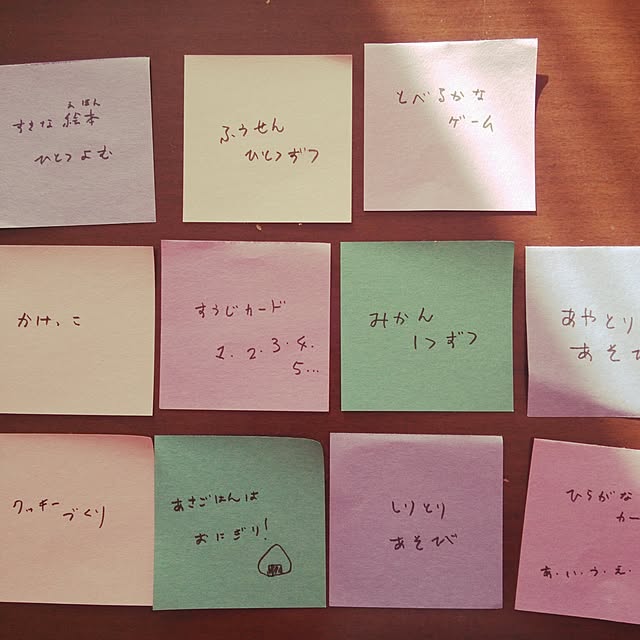 すきな 絵本
えほん
ひとつ よむ
ふうせん
ひとつずつ
とべるかな
ゲーム
かけっこ
すうじカード
1. 2. 3. 4.
5...
みかん
1つずつ
あやとり
あそび
クッキー
づくり
あさごはんは
おにぎり!
しりとり
あそび
ひらがな
カー
あ・い・う・え・